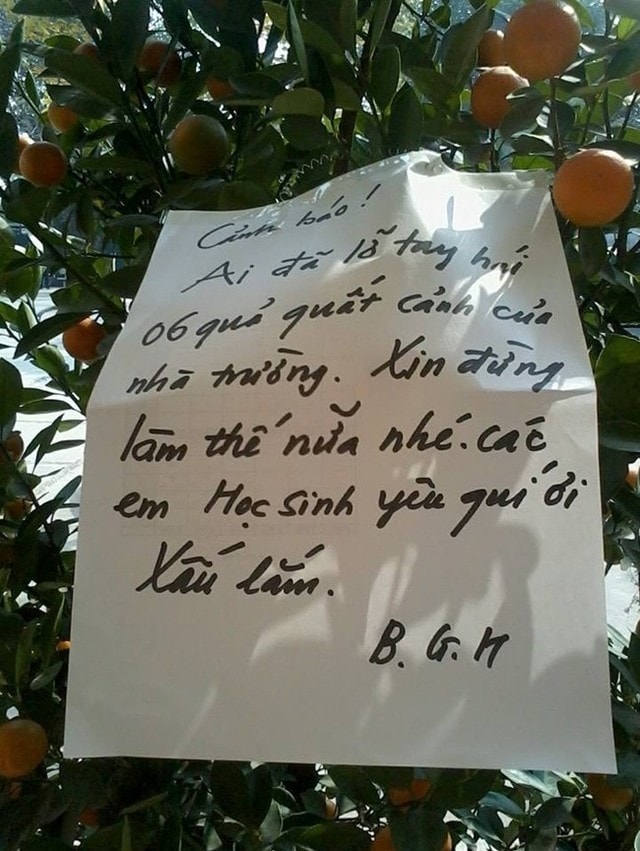 Cảnh báo!
Ai đã lỡ tay hái
06 quả quất cảnh của
nhà trường. Xin đừng
làm thế nữa nhé. các
em Học sinh yêu quí ơi
Xấu lắm.
B.G.H